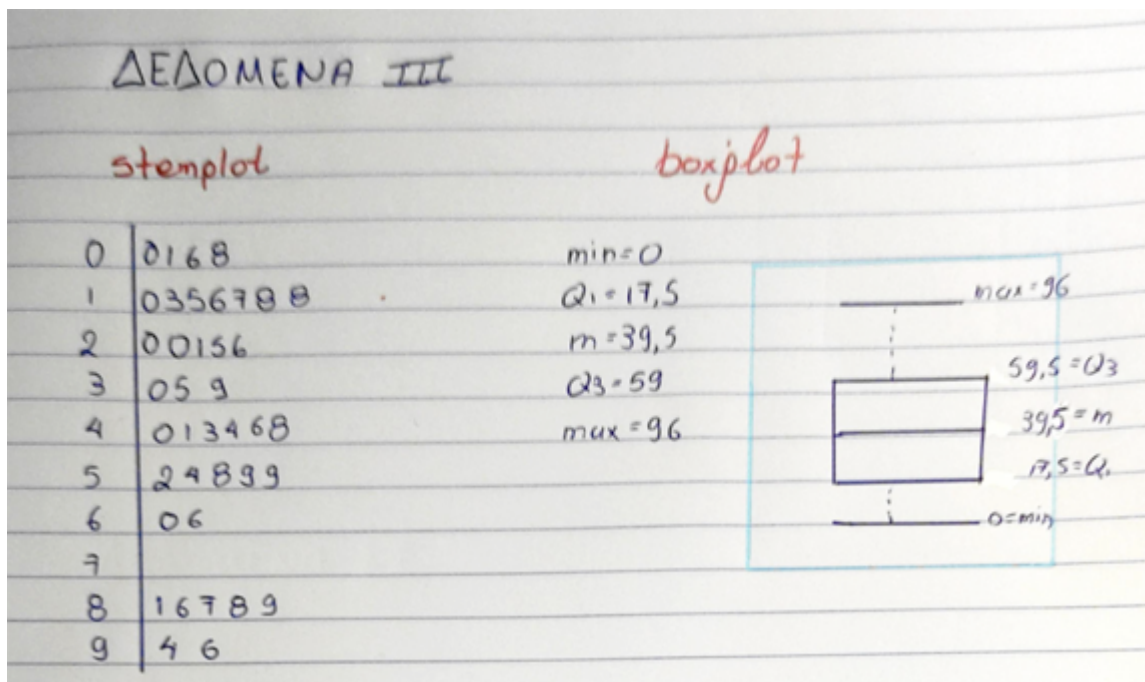 ΔΕΔΟΜΕΝΑ III
stemplot
boxplot
0 | 0168
1 | 0356788
2 | 00156
3 | 059
4 | 013468
5 | 24899
6 | 06
7 |
8 | 16789
9 | 4 6
min=0
Q1=17,5
m=39,5
Q3=59
max=96
max=96
59,5=Q3
39,5=m
17,5=Q1
0=min